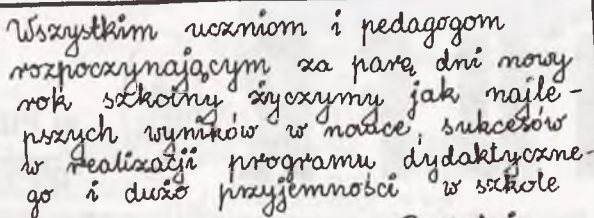 Wszystkim uczniom i pedagogom
rozpoczynającym za parę dni nowy
rok szkolny życzymy jak najle-
pszych wyników w nauce, sukcesów
w realizacji programu dydaktyczne-
go i dużo przyjemności w szkole